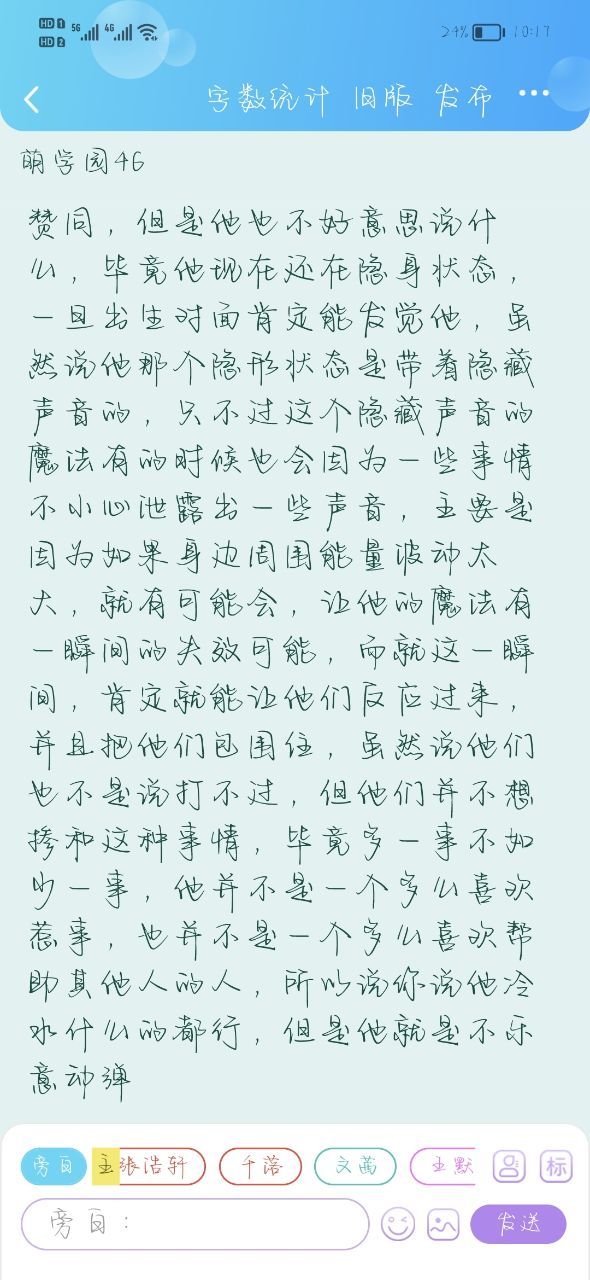 HD 1 5G 4G 24% 10:17
HD 2
字数统计 旧版 发布
萌学园46
赞同，但是他也不好意思说什
么，毕竟他现在还在隐身状态，
一旦出生对面肯定能发觉他，虽
然说他那个隐形状态是带着隐藏
声音的，只不过这个隐藏声音的
魔法有的时候也会因为一些事情
不小心泄露出一些声音，主要是
因为如果身边周围能量波动太
大，就有可能会，让他的魔法有
一瞬间的失效可能，而就这一瞬
间，肯定就能让他们反应过来，
并且把他们包围住，虽然说他们
也不是说打不过，但他们并不想
掺和这种事情，毕竟多一事不如
少一事，他并不是一个多么喜欢
惹事，也并不是一个多么喜欢帮
助其他人的人，所以说你说他冷
水什么的都行，但是他就是不乐
意动弹
旁白 主 张浩轩 千落 文茜 王默 标
旁白： 发送